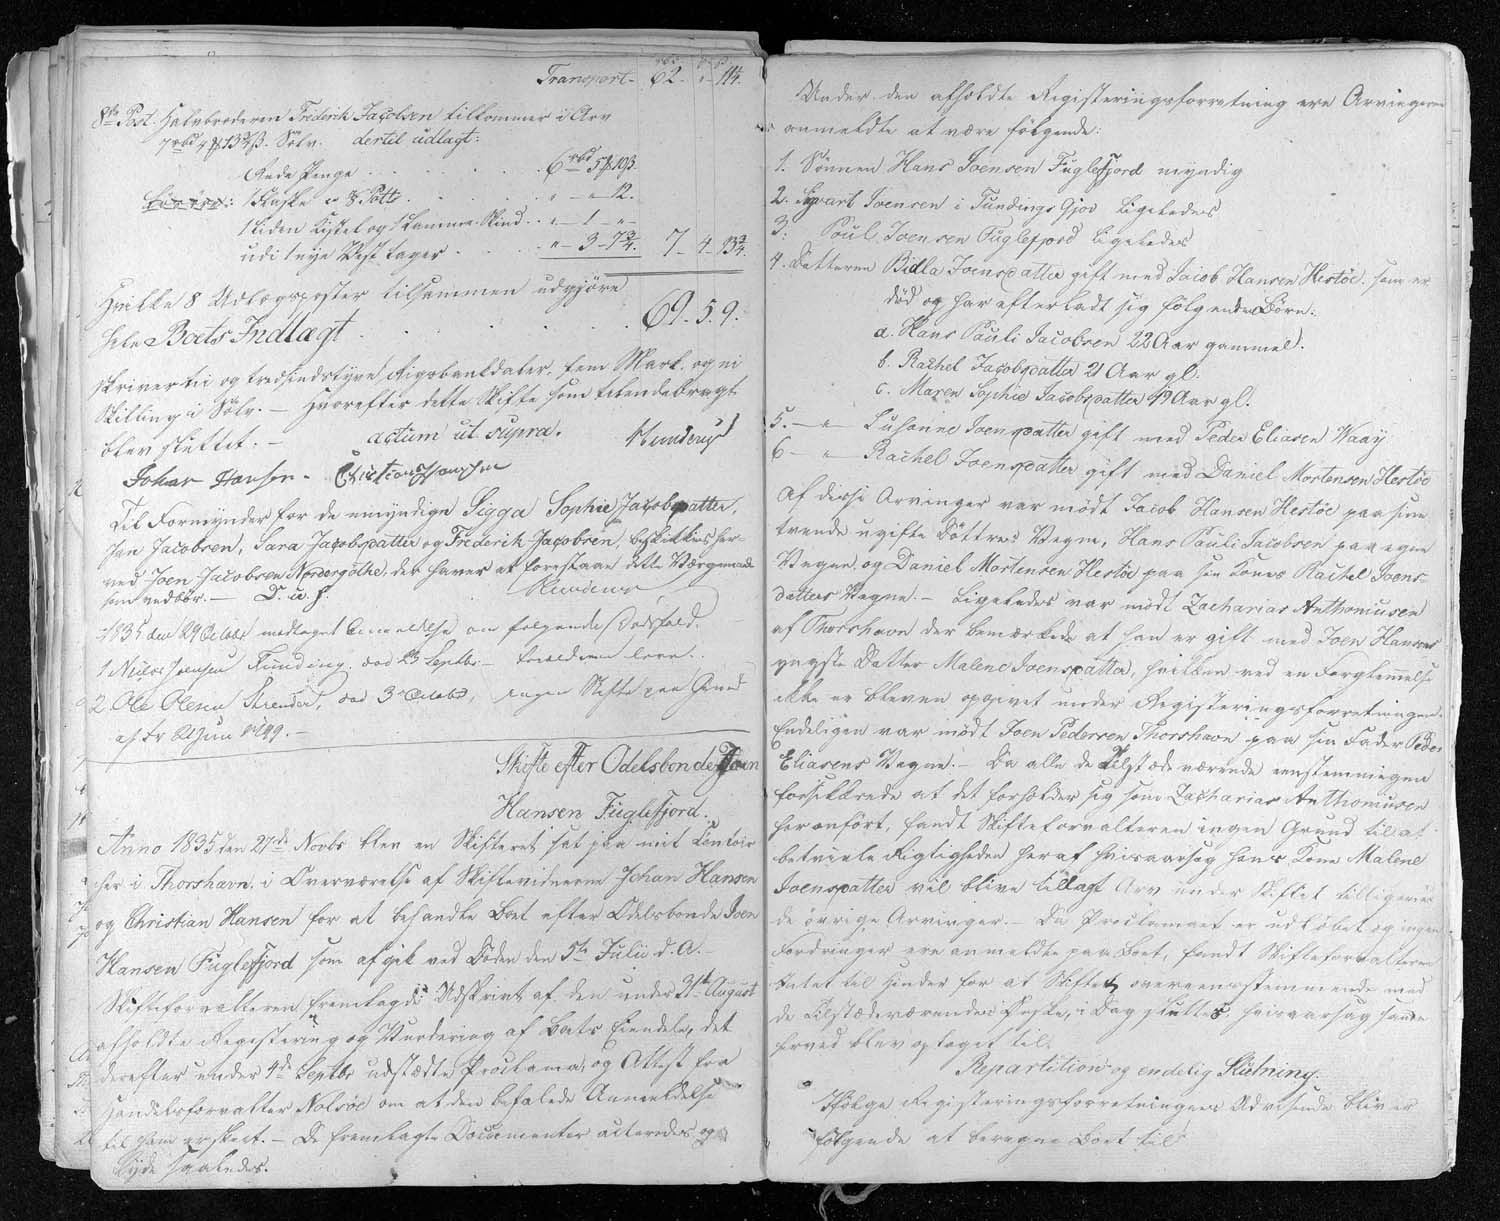 Transport - 62. " - 11¼.
8de Post. Halvbroderen Frederik Jacobsen tilkommer i Arv
7 rbd 4 ℔ 13¾ ß. Sølv. dertil udlagt:
Rede Penge . . . . . 6 rbd 5 ℔ 10 ß.
1 Flaske " 8 Potts . . . . " - " - 12.
1 liden Kistel og 1 Lamme Skind . . " - 1 - " -
udi 1 nye Vest tager . . . . " - 3 - 7¾. 7 - 4 - 13¾.
Hvilke 8 Udlægsposter tilsammen udgjøre
hele Boets Indlagt . . . . . 69. 5. 9.
skriver ni og tredsindstyve Rigsbankdaler, fem Mark og ni
Skilling i Sølv. — Hvorefter dette Skifte som tilendebragt
blev sluttet. — actum ut supra.
Johan Hansen - Christian Hansen
Til Formynder for de umyndige Sigga Sophie Jacobsdatter,
Jan Jacobsen, Sara Jacobsdatter og Frederik Jacobsen, beskikkes her-
ved Joen Jacobsen Nordregøthe, der haver at forestaae dette Værgemaal
som vedbør. — D. u. s.
1835 den 29 Octobr modtaget Anmeldelse om følgende Dødsfald.
1 Niclos Joensen Funding, død 23 Septbr — forældrene leve.
2 Ole Olesen Strender, død 3 Octobr, ingen Skifte paa Grund
af Fr 21 Juni 1799. —
Skifte efter Odelsbonde Joen
Hansen Fuglefjord.
Anno 1835 den 27de Novbr blev en Skifteret sat paa mit Contoir
her i Thorshavn i Overværelse af Skiftevidnerne Johan Hansen
og Christian Hansen for at behandle Boet efter Odelsbonde Joen
Hansen Fuglefjord som afgik ved Døden den 5te Julii d. A. —
Skifteforvalteren fremlagde Udskrivt af den under 31te August
afholdte Registering og Vurdering af Boets Eiendele, det
derefter under 4de Septbr udstædte Proclama, og Attest fra
Handelsforvalter Nolsøe om at den befalede Anmeldelse
til ham er skeet. — De fremlagte Documenter acteredes og
lyde saaledes.
Under den afholdte Registeringsforretning ere Arvingerne
anmeldte at være følgende:
1. Sønnen Hans Joensen Fuglefjord myndig
2. Sivart Joensen i Fundings Gjov ligeledes
3. Poul Joensen Fuglefjord ligeledes
4. Datteren Bidla Joensdatter gift med Jacob Hansen Hestøe. som er
død og har efterladt sig følgende Børn:
a. Hans Pauli Jacobsen 22 Aar gammel.
b. Rachel Jacobsdatter 21 Aar gl.
c. Maren Sophie Jacobsdatter 19 Aar gl.
5. — " Susanne Joensdatter gift med Peder Eliasen Waay
6 — " Rachel Joensdatter gift med Daniel Mortensen Hestøe
Af disse Arvinger var mødt Jacob Hansen Hestøe paa sine
tvende ugifte Døttres Vegne, Hans Pauli Jacobsen paa egne
Vegne, og Daniel Mortensen Hestøe paa sin Kones Rachel Joens-
datters Vegne. — Ligeledes var mødt Zacharias Anthoniusen
af Thorshavn der bemærkede at han er gift med Joen Hansens
yngste Datter Malene Joensdatter, hvilken ved en Forglemmelse
ikke er bleven opgivet under Registeringsforretningen.
Endeligen var mødt Joen Pedersen Thorshavn paa sin Fader Peder
Eliasens Vegne. — Da alle de tilstædeværende eenstemmigen
forsikkrede at det forholder sig som Zacharias Anthoniusen
har anført, fandt Skifteforvalteren ingen Grund til at
betvivle Rigtigheden heraf hvisaarsag hans Kone Malene
Joensdatter vil blive tillagt Arv under Skiftet tilligemed
de øvrige Arvinger. — Da Proclamaet er udløbet og ingen
Fordringer ere anmeldte paa Boet, fandt Skifteforvalteren
Intet til Hinder for at Skiftet overeensstemmende med
de tilstædeværendes Ønske, i Dag sluttes, hvisaarsag han
herved blev optaget til.
Repartition og endelig Slutning.
Ifølge Registeringsforretningens Udvisende bliver
følgende at beregne Boet til